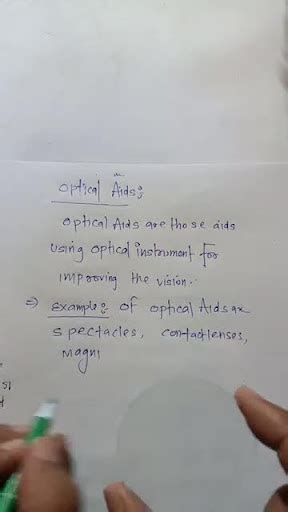 Optical Aids:
Optical Aids are those aids
using optical instrument for
improving the vision.
⇒ Example: of optical Aids are
spectacles, contactlenses,
Magni